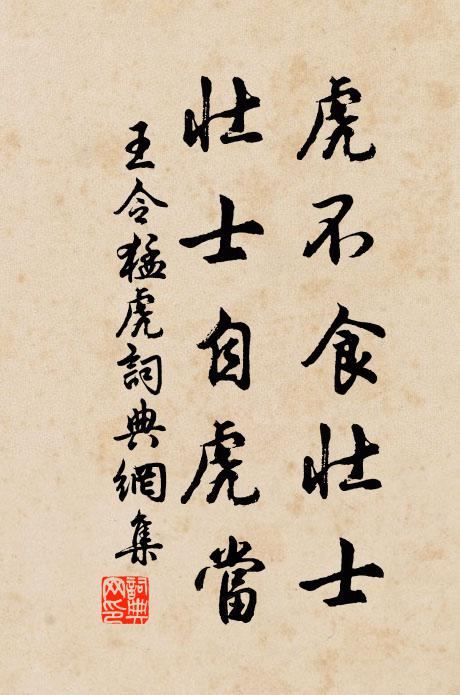 虎不食壯士
壯士自虎當
王令猛虎詞典網集
詞典网印